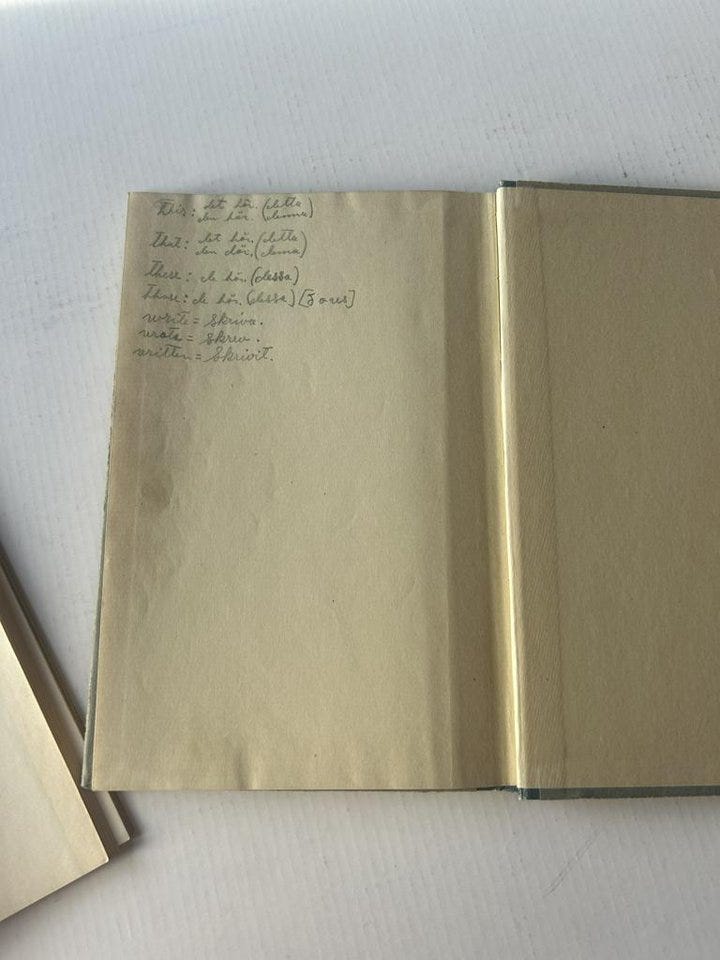 this: det här. (detta
den här. (denna)
that: det här. (detta
den där, (denna)
these: de här, (dessa)
those: de här. (dessa)
write = skriva.
wrote = skrev.
written = skrivit.